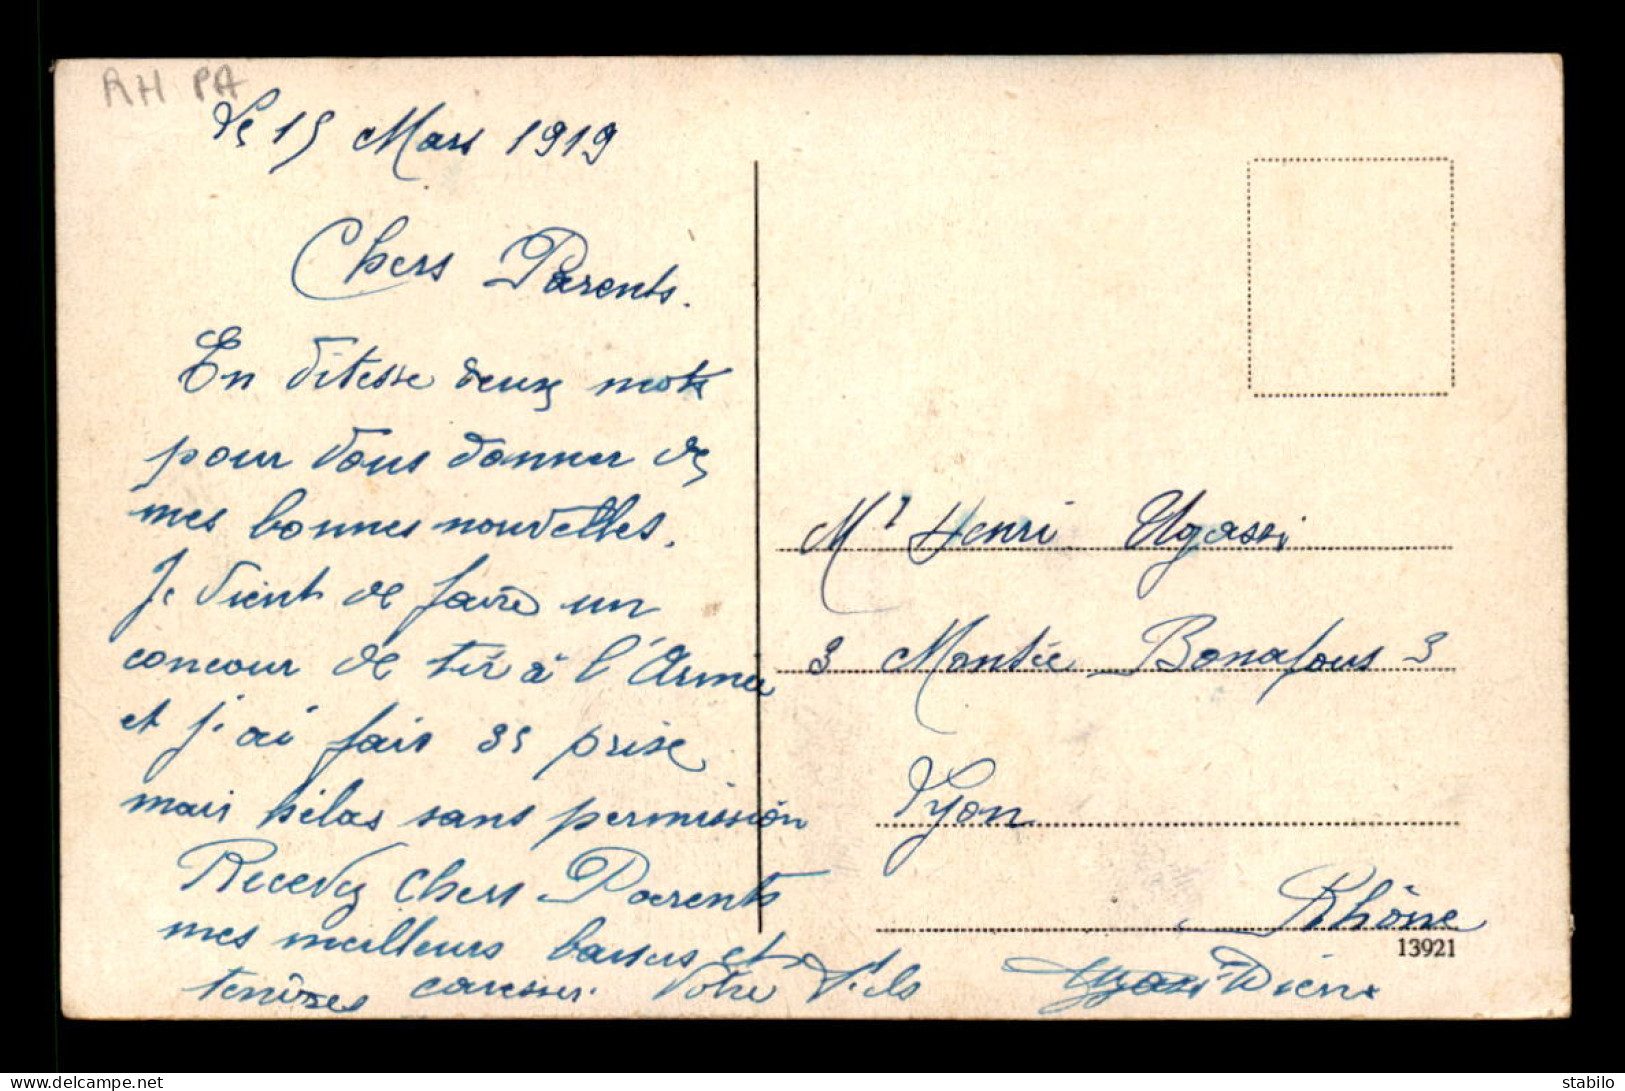 RH PA
Le 15 Mars 1919
Chers Parents.
En vitesse deux mots
pour vous donner de
mes bonnes nouvelles.
Je vient de faire un
concour de tir à l'Armée
et j'ai fais 35 prise
mais hélas sans permission
Recevez chers Parents
mes meilleurs baisers et
tendres caresses. Votre Fils
Mr Henri Ugassi
3 Montée Bonafous 3
Lyon
Rhône
13921
Ugassi
delcampe.net
stabilo